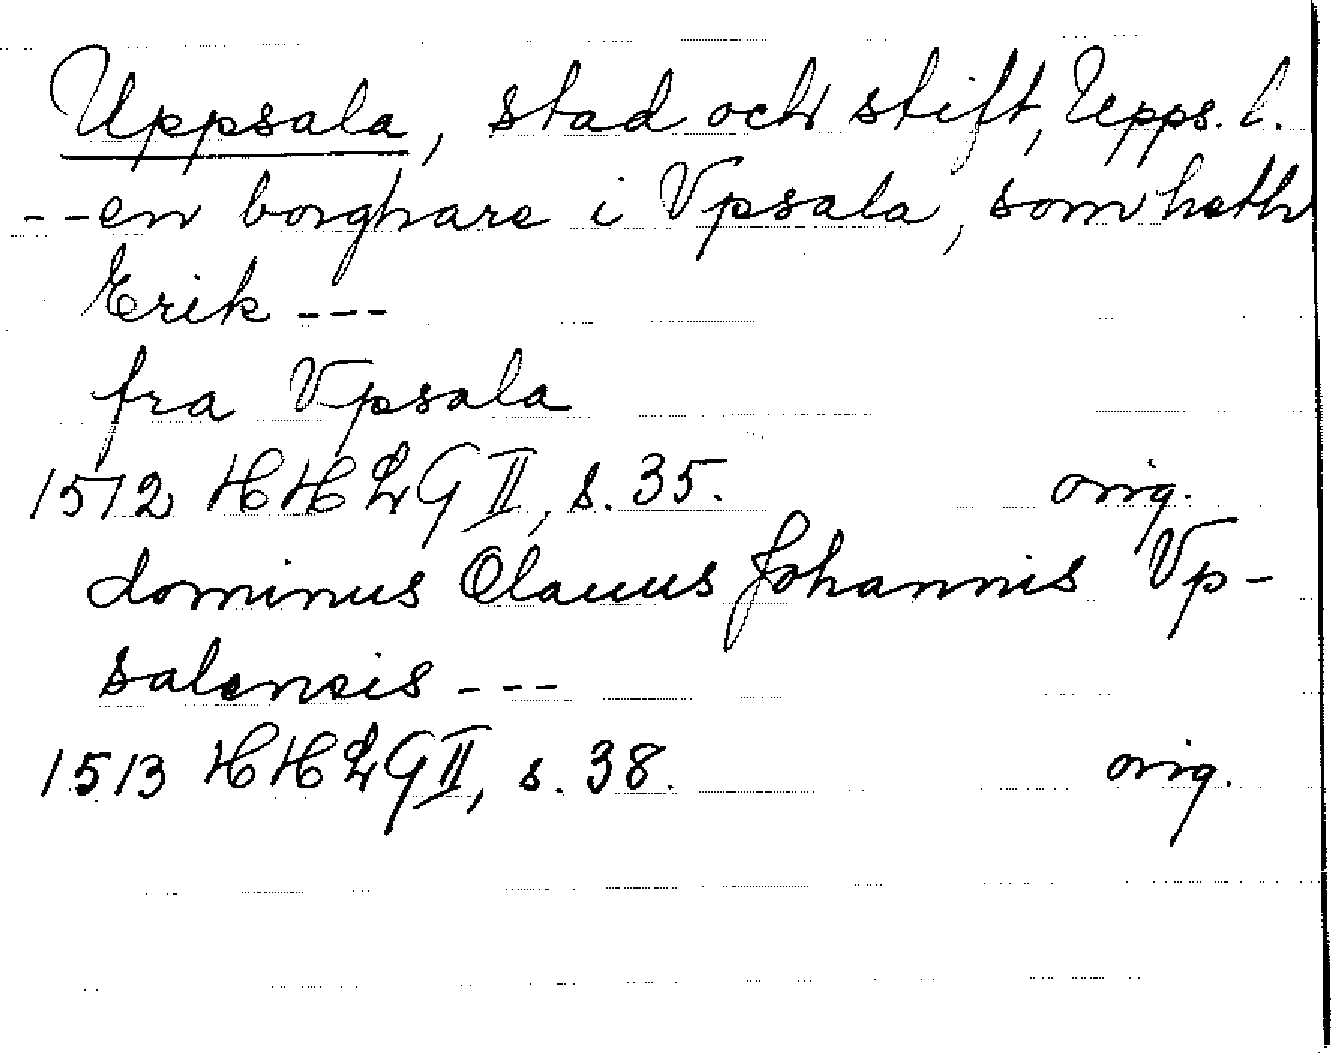 Uppsala, stad och stift, Upps. l.
--en borghare i Vpsala, som heth
Erik ---
fra Vpsala
1512 HHLG II, s. 35. orig.
dominus Olauus Johannis Vp-
salensis ---
1513 HHLG II, s. 38. orig.